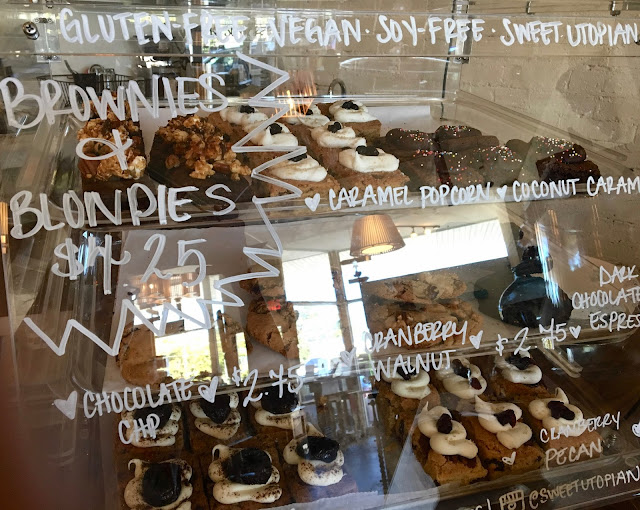 GLUTEN-FREE · VEGAN · SOY-FREE · SWEET UTOPIAN
BROWNIES
&
BLONDIES
$4.25
♥ CARAMEL POPCORN ♥ COCONUT CARAM
DARK
CHOCOLATE
ESPRES
CRANBERRY
WALNUT ♥ $2.75 ♥
♥ CHOCOLATE ♥ $2.75 ♥
CHIP
CRANBERRY
♥ PECAN
@SWEETUTOPIAN